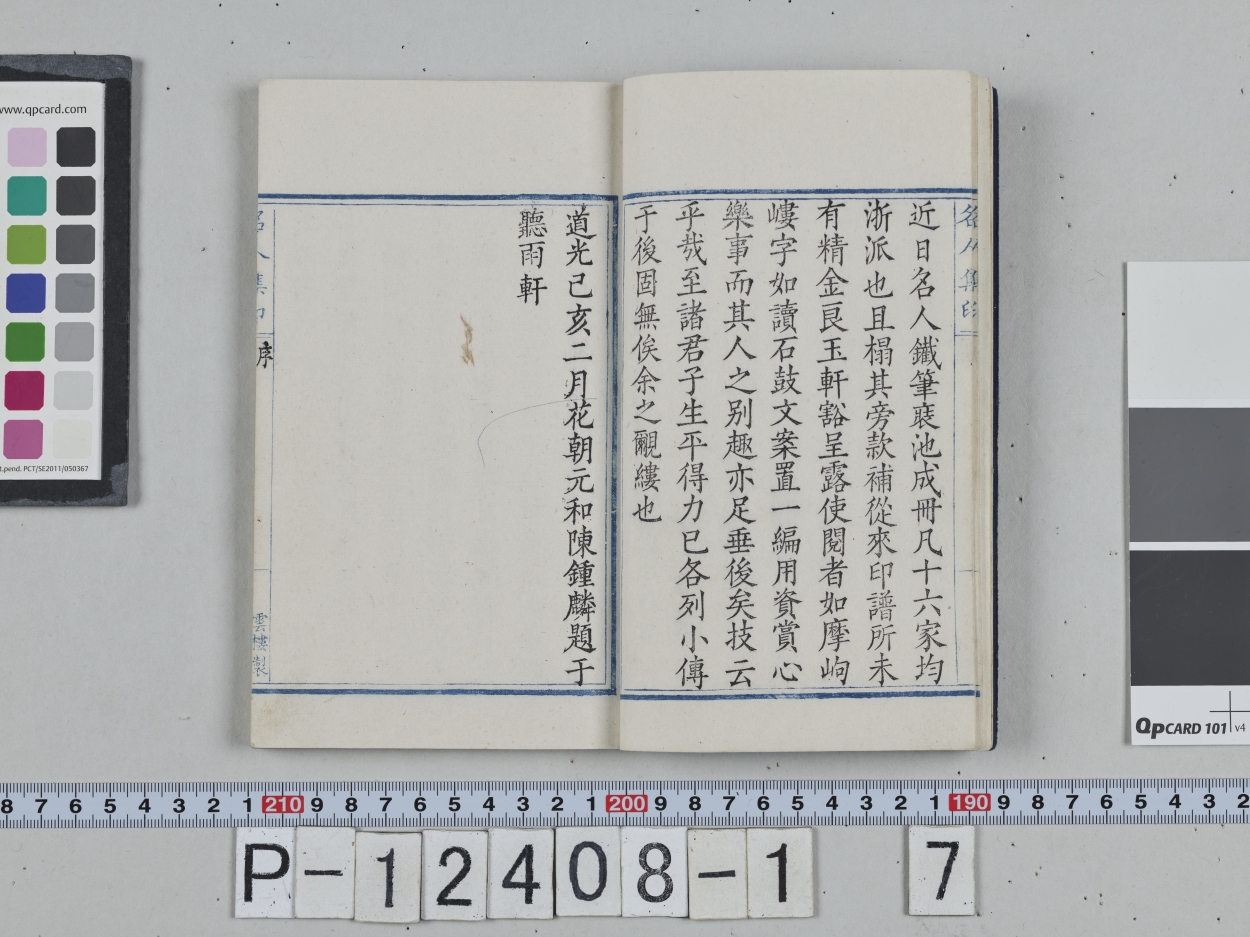 近日名人鐵筆裒池成冊凡十六家均
浙派也且榻其旁款補從來印譜所未
有精金良玉軒豁呈露使閱者如摩岣
嶁字如讀石鼓文案置一編用資賞心
樂事而其人之别趣亦足垂後矣技云
乎㢤至諸君子生平得力已各列小傳
于後固無俟余之覼縷也
道光己亥二月花朝元和陳鍾麟題于
聽雨軒
名人集印
序
雲樓製
www.qpcard.com
t.pend. PCT/SE2011/050367
QpCARD 101 v4
8 7 6 5 4 3 2 1 210 9 8 7 6 5 4 3 2 1 200 9 8 7 6 5 4 3 2 1 190 9 8 7 6 5 4 3 2
P-12408-1 7